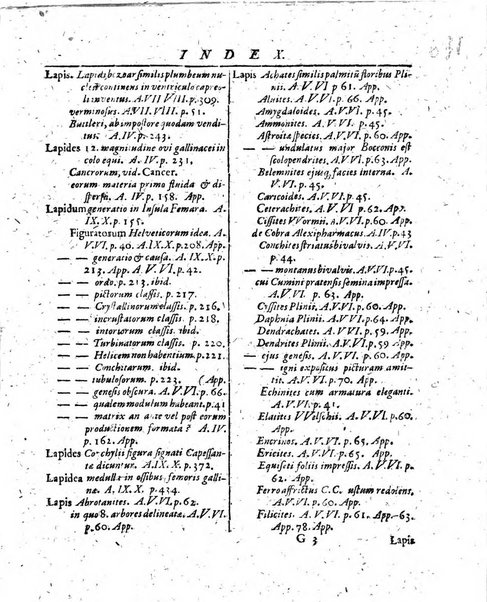 INDEX.
Lapis. Lapis bezoar similis plumbeum nu-
cleũ continens in ventriculo capreo-
li inventus. A.VII VIII. p.309.
verminosus. A.VII.VIII. p. 51.
Butleri, ab impostore quodam vendi-
tus. A.IV.p.243.
Lapides 12. magnitudine ovi gallinacei in
colo equi. A. IV. p. 231.
Cancrorum, vid. Cancer.
eorum materia primo fluida & di-
spersa. A. IV. p. 158. App.
Lapidum generatio in Insula Femara. A.
IX.X. p. 155.
Figuratorum Helveticorum idea. A.
V.VI. p. 40. A.IX.X. p.208. App.
— — generatio & causa. A.IX.X. p.
213. App. A V.VI. p. 42.
— — ordo. p. 213. ibid.
— — pictorum classis. p. 217.
— — Crystallinorum classis. p. 216.
— — incrustatorum classis. p. 218.
— — intortorum classis. ibid.
— — Turbinatorum classis. p. 220.
— — Helicem non habentium. p.221.
— — Conchitarum. ibid.
— — tubulosorum. p. 223. (App.
— — genesis obscura. A.V.VI. p. 66.
— — qualem modulum habeant. p.41
— — matrix an ante vel post eorum
productionem formata? A. IV.
p. 162. App.
Lapides Cochylii figura signati Capessan-
tæ dicuntur. A.IX.X. p.372.
Lapidea medulla in ossibus femoris galli-
næ. A. IX.X. p.434.
Lapis Abrotanites. A.V.VI. p.62.
in quo 8. arbores delineatæ. A.V.VI.
p.60. App.
Lapis Achates similis palmitũ floribus Pli-
nii. A.V.VI p 61. App.
Alnites. A.V.VI. p. 61. App.
Amygdaloides. A.V.VI. p. 45.
Ammonites. A.V.VI. p. 45.
Astroitæ species. A.V.VI. p. 60. App.
— — undulatus major Bocconis est
scolopendrites. A.V.VI. p. 63.
Belemnites ejusq, facies interna. A.
V.VI. p. 45.
Caricoides. A.V.VI. p. 45.
Ceterachites. A.V.VI p. 62. App.
Cissites Wormii. A.V.VI. p. 60. App.
de Cobra Alexipharmacus. A.IV p.43
Conchites striatus bivalvis. A.V.VI.
p. 44.
— — montanus bivalvis. A.V.VI. p.45.
cui Cumini pratensis semina impressa.
A.V.VI. p. 63. App.
Cissites Plinii. A.V.VI. p. 60. App.
Daphnia Plinii. A.V.VI. p.64. App.
Dendrachates. A.V.VI. p.59. App.
Dendrites Plinii. A.V.VI. p.59 App.
— — ejus genesis. A.V.VI. p. 60. App.
— — igni expositus picturam amit-
tit. A.V.VI. p. 70. App.
Echinites cum armatura eleganti.
A.V.VI. p. 41.
Elatites VVelschii. A.V.VI. p.60.
App.
Encrinos. A.V.VI. p. 65. App.
Ericites. A.V.VI. p. 65. App.
Equiseti foliis impressis. A.V.VI. p. 61.
App.
Ferro affrictus C.C. ustum redolens.
A.V.VI. p.60. App.
Filicites. A.V.VI. p. 61. App.-63.
App. 78. App.
G 3
Lapis